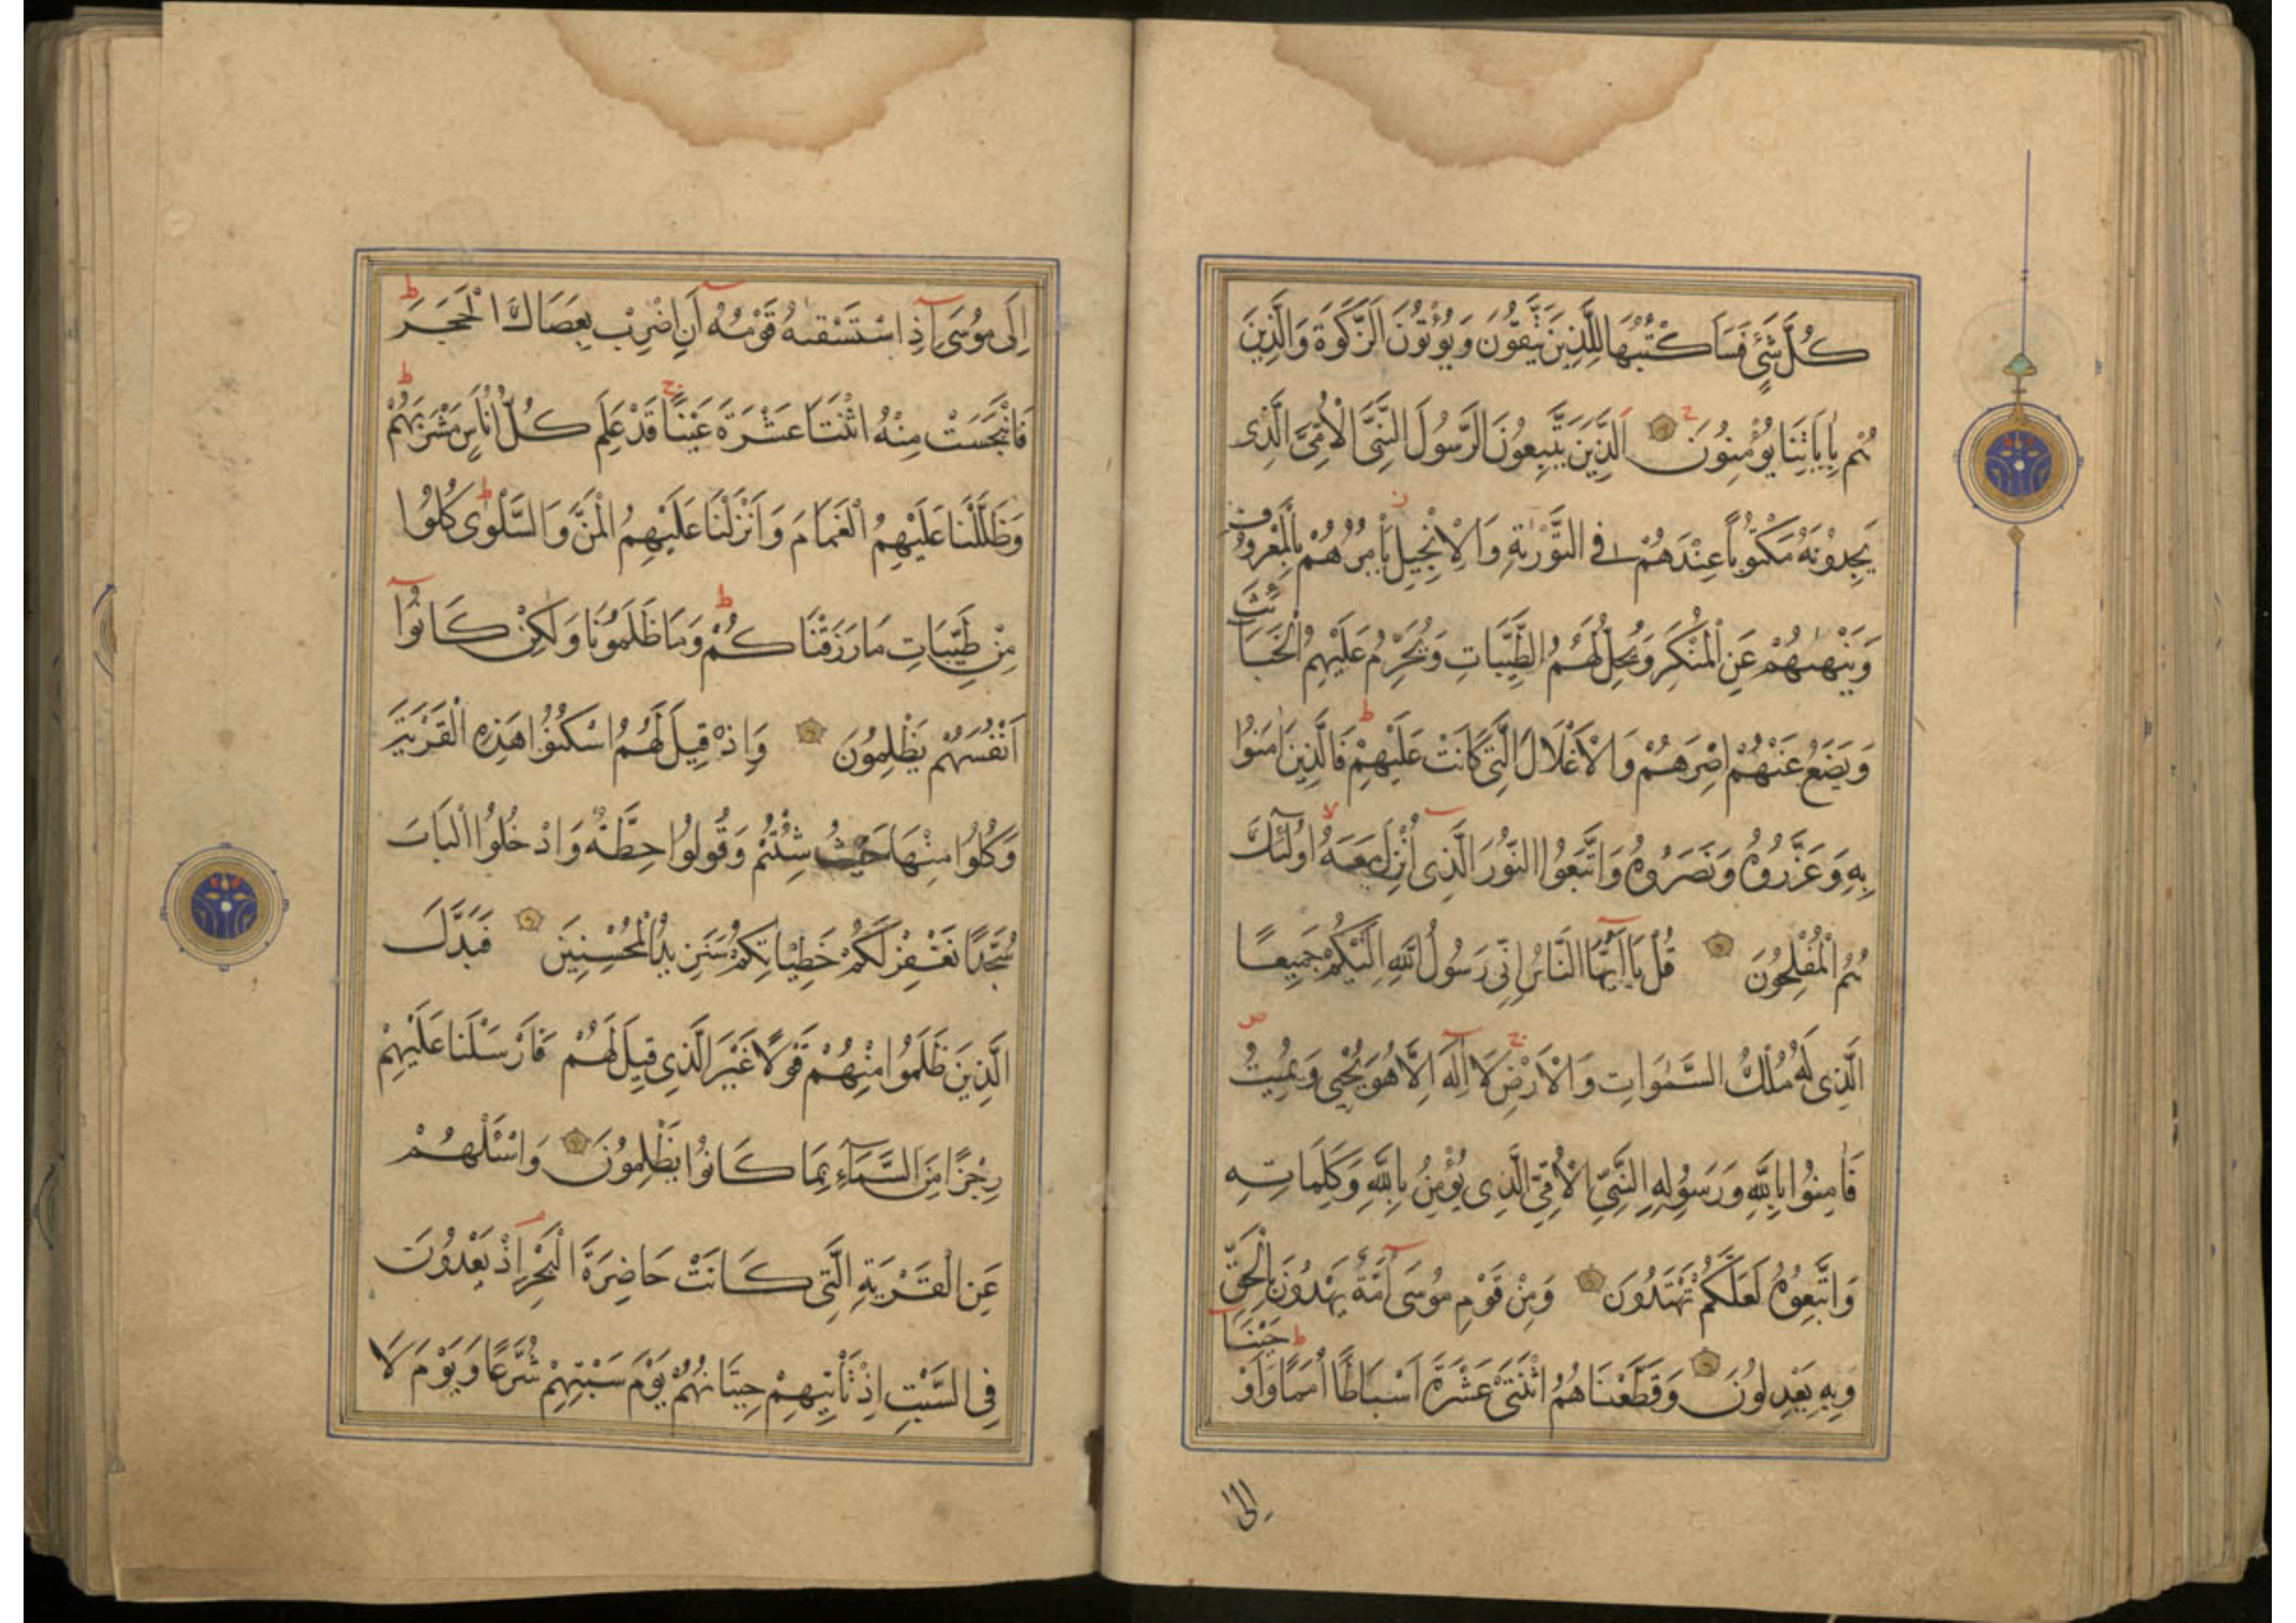 كُلَّ شَيْءٍ فَسَاَكْتُبُهَا لِلَّذِينَ يَتَّقُونَ وَيُؤْتُونَ الزَّكٰوةَ وَالَّذِينَ
هُمْ بِاٰيَاتِنَا يُؤْمِنُونَ ح اَلَّذِينَ يَتَّبِعُونَ الرَّسُولَ النَّبِيَّ الْاُمِّيَّ الَّذِى
يَجِدُونَهُ مَكْتُوبًا عِنْدَهُمْ فِى التَّوْرٰيةِ وَالْاِنْجِيلِ ز يَاْمُرُهُمْ بِالْمَعْرُوفِ
وَيَنْهٰيهُمْ عَنِ الْمُنْكَرِ وَيُحِلُّ لَهُمُ الطَّيِّبَاتِ وَيُحَرِّمُ عَلَيْهِمُ الْخَبَائِثَ
وَيَضَعُ عَنْهُمْ اِصْرَهُمْ وَالْاَغْلَالَ الَّتِى كَانَتْ عَلَيْهِمْ ط فَالَّذِينَ اٰمَنُوا
بِهِ وَعَزَّرُوهُ وَنَصَرُوهُ وَاتَّبَعُوا النُّورَ الَّذِى اُنْزِلَ مَعَهُ لا اُولٰئِكَ
هُمُ الْمُفْلِحُونَ قُلْ يَا اَيُّهَا النَّاسُ اِنِّى رَسُولُ اللّٰهِ اِلَيْكُمْ جَمِيعًا
الَّذِى لَهُ مُلْكُ السَّمٰوَاتِ وَالْاَرْضِ ج لَا اِلٰهَ اِلَّا هُوَ يُحْيِى وَيُمِيتُ ص
فَاٰمِنُوا بِاللّٰهِ وَرَسُولِهِ النَّبِيِّ الْاُمِّيِّ الَّذِى يُؤْمِنُ بِاللّٰهِ وَكَلِمَاتِهِ
وَاتَّبِعُوهُ لَعَلَّكُمْ تَهْتَدُونَ وَمِنْ قَوْمِ مُوسَى اُمَّةٌ يَهْدُونَ بِالْحَقِّ
وَبِهِ يَعْدِلُونَ وَقَطَّعْنَاهُمُ اثْنَتَىْ عَشْرَةَ اَسْبَاطًا اُمَمًا ط وَاَوْحَيْنَا
اِلٰى
اِلَى مُوسَى اِذِ اسْتَسْقٰيهُ قَوْمُهُ اَنِ اضْرِبْ بِعَصَاكَ الْحَجَرَ ط
فَانْبَجَسَتْ مِنْهُ اثْنَتَا عَشْرَةَ عَيْنًا ج قَدْ عَلِمَ كُلُّ اُنَاسٍ مَشْرَبَهُمْ ط
وَظَلَّلْنَا عَلَيْهِمُ الْغَمَامَ وَاَنْزَلْنَا عَلَيْهِمُ الْمَنَّ وَالسَّلْوٰى ط كُلُوا
مِنْ طَيِّبَاتِ مَا رَزَقْنَاكُمْ ط وَمَا ظَلَمُونَا وَلٰكِنْ كَانُوا
اَنْفُسَهُمْ يَظْلِمُونَ وَاِذْ قِيلَ لَهُمُ اسْكُنُوا هٰذِهِ الْقَرْيَةَ
وَكُلُوا مِنْهَا حَيْثُ شِئْتُمْ وَقُولُوا حِطَّةٌ وَادْخُلُوا الْبَابَ
سُجَّدًا نَغْفِرْ لَكُمْ خَطِيٓاٰتِكُمْ سَنَزِيدُ الْمُحْسِنِينَ فَبَدَّلَ
الَّذِينَ ظَلَمُوا مِنْهُمْ قَوْلًا غَيْرَ الَّذِى قِيلَ لَهُمْ فَاَرْسَلْنَا عَلَيْهِمْ
رِجْزًا مِنَ السَّمَاءِ بِمَا كَانُوا يَظْلِمُونَ وَاسْئَلْهُمْ
عَنِ الْقَرْيَةِ الَّتِى كَانَتْ حَاضِرَةَ الْبَحْرِ م اِذْ يَعْدُونَ
فِى السَّبْتِ اِذْ تَاْتِيهِمْ حِيتَانُهُمْ يَوْمَ سَبْتِهِمْ شُرَّعًا وَيَوْمَ لَا